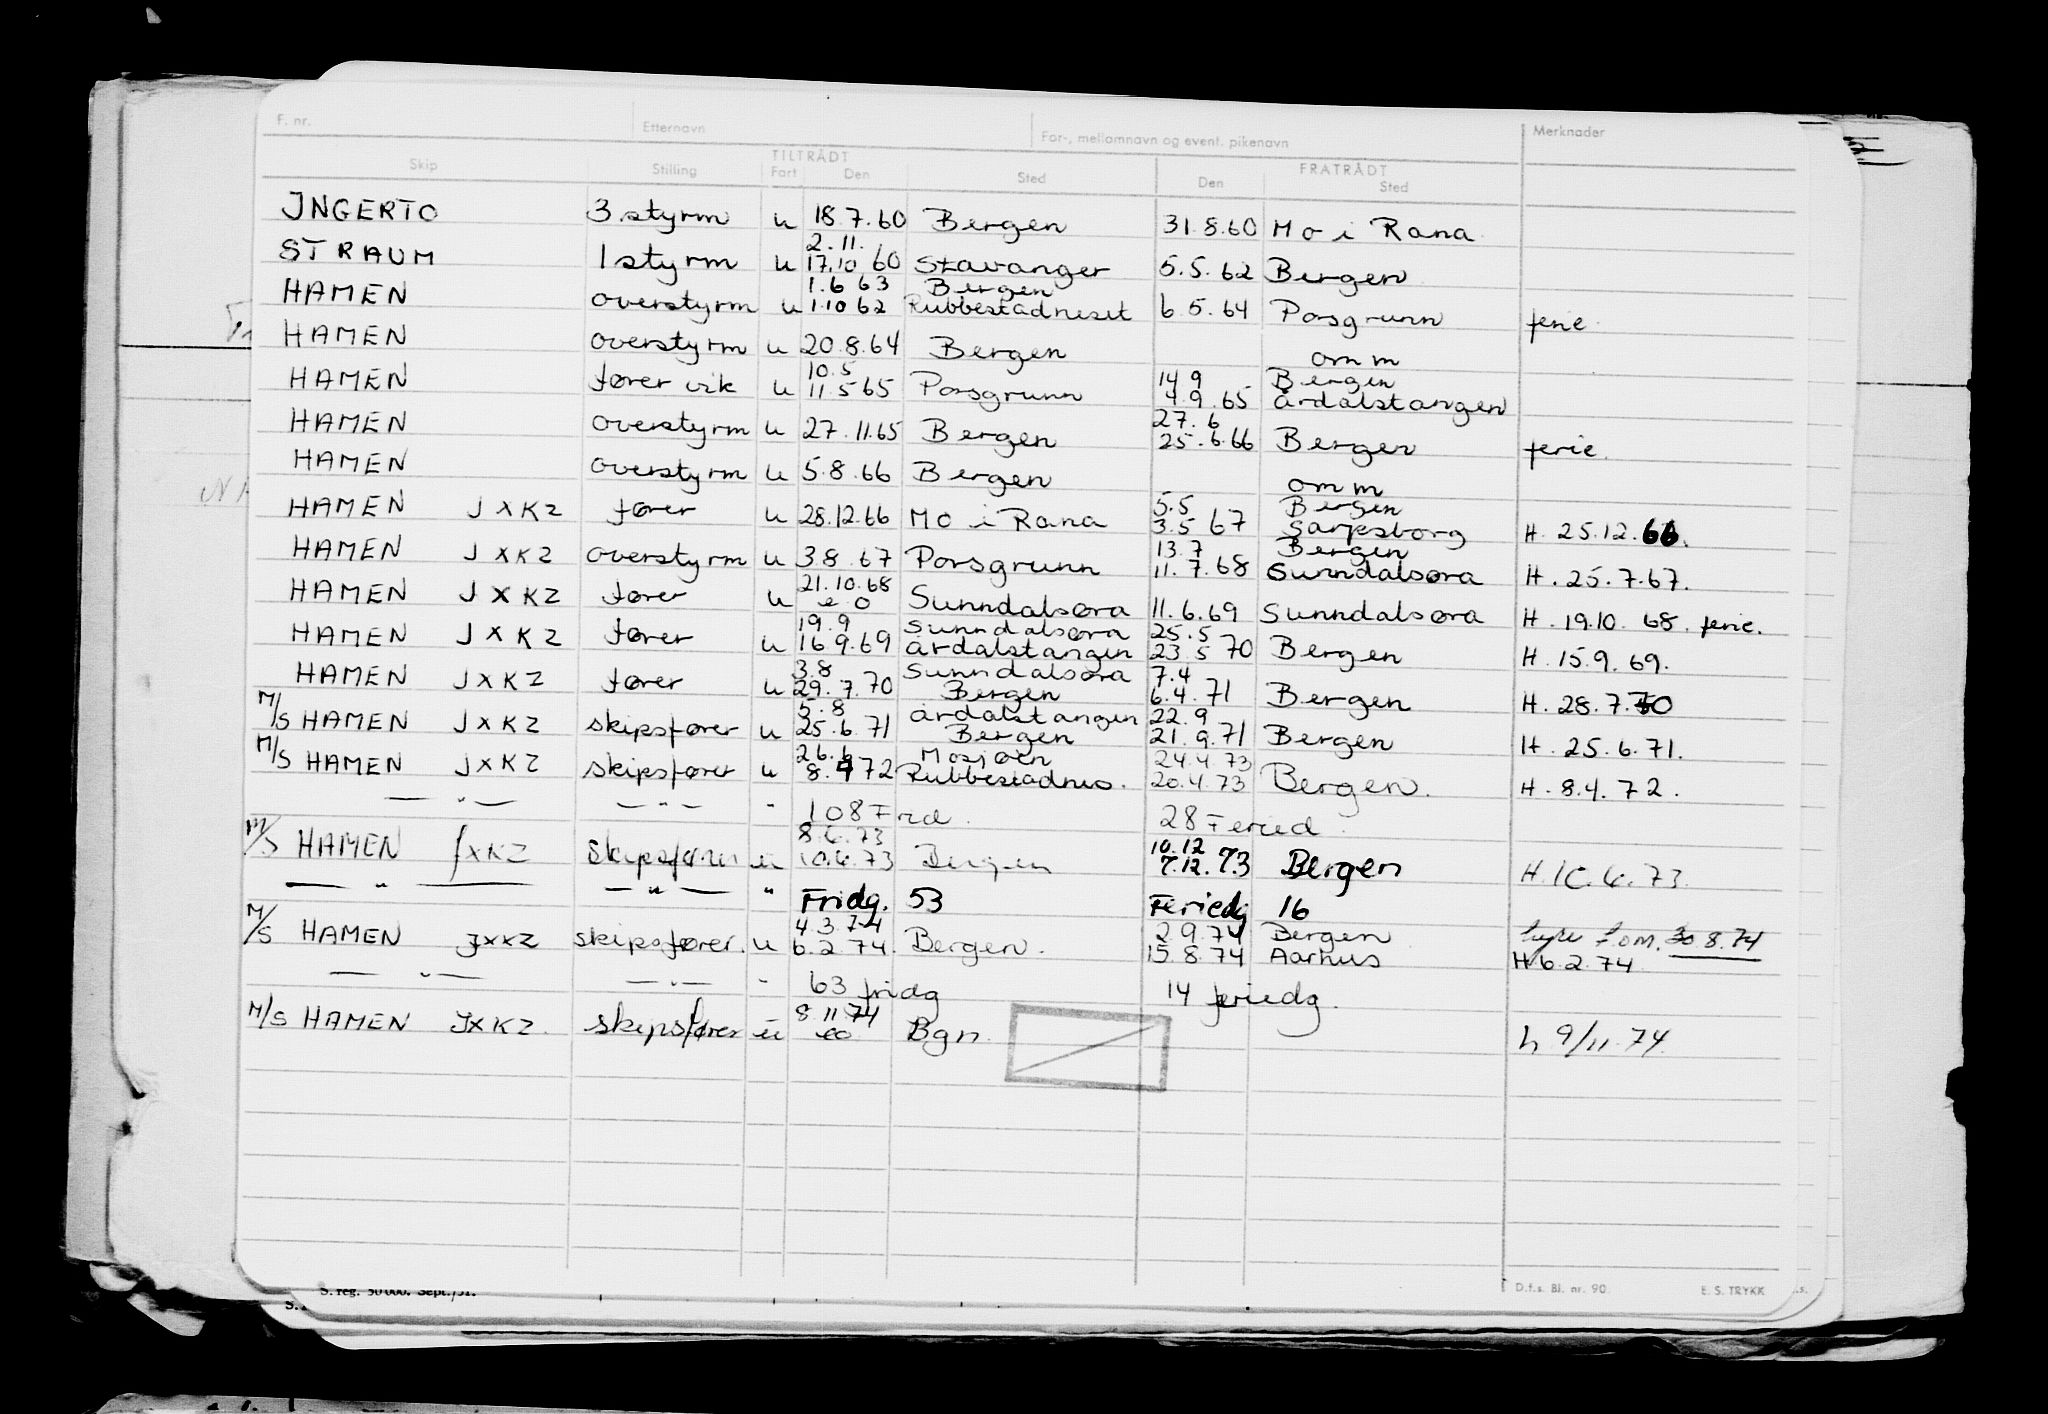 F. nr. Etternavn For-, mellomnavn og event. pikenavn Merknader
Skip Stilling TILTRÅDT Fart Den Sted FRATRÅDT Den Sted
JNGERTO 3 styrm u 18.7.60 Bergen 31.8.60 Mo i Rana
2.11.
STRAUM 1 styrm u 17.10 60 Stavanger 5.5.62 Bergen
1.6 63 Bergen
HAMEN overstyrm u 1.10 62 Rubbestadneset 6.5.64 Porsgrunn ferie
HAMEN overstyrm u 20.8.64 Bergen om m
10.5 14 9 Bergen
HAMEN fører vik u 11.5 65 Porsgrunn 4.9.65 årdalstangen
27.6
HAMEN overstyrm u 27.11.65 Bergen 25.6.66 Bergen ferie.
HAMEN overstyrm u 5.8.66 Bergen om m
5.5 Bergen
HAMEN J X K Z fører u 28.12.66 Mo i Rana 3.5 67 Sarpsborg H. 25.12.66.
13.7 Bergen
HAMEN J X K Z overstyrm u 3.8.67 Porsgrunn 11.7.68 Sunndalsøra H. 25.7.67.
21.10.68
HAMEN J X K Z fører u e o Sunndalsøra 11.6.69 Sunndalsøra H. 19.10.68. ferie.
19.9 Sunndalsøra 25.5
HAMEN J X K Z fører u 16.9.69 årdalstangen 23.5 70 Bergen H. 15.9.69.
3.8 Sunndalsøra 7.4
HAMEN J X K Z fører u 29.7.70 Bergen 6.4.71 Bergen H. 28.7.70
5.8 årdalstangen 22.9
M/S HAMEN J X K Z skipsfører u 25.6.71 Bergen 21.9.71 Bergen H. 25.6.71.
26.6 Mosjøen 24.4.73
M/S HAMEN J X K Z skipsfører u 8.4 72 Rubbestadnes. 20.4.73 Bergen. H. 8.4.72.
— " — — " — " 108 Frid. 28 Feried.
8.6.73 10.12
M/S HAMEN J X K Z Skipsfører u 10.6.73 Bergen 7.12.73 Bergen H. 10.6.73.
— " — — " — " Fridg. 53 Feriedg 16
4.3.74 2 9.74 Bergen f.om. 30 8.74
M/S HAMEN J X K Z skipsfører. u 6.2.74. Bergen. 15.8.74 Aarhus H 6.2.74
— " — — " — " 63 fridg 14 feriedg.
8.11.74
M/S HAMEN J X K Z. skipsfører u eo Bgn. h 9/11.74.
D.f.s. Bl. nr. 90. E. S. TRYKK
S. reg. 50 000. Sept./51.